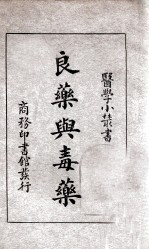 醫學小叢書
良藥與毒藥
商務印書館發行